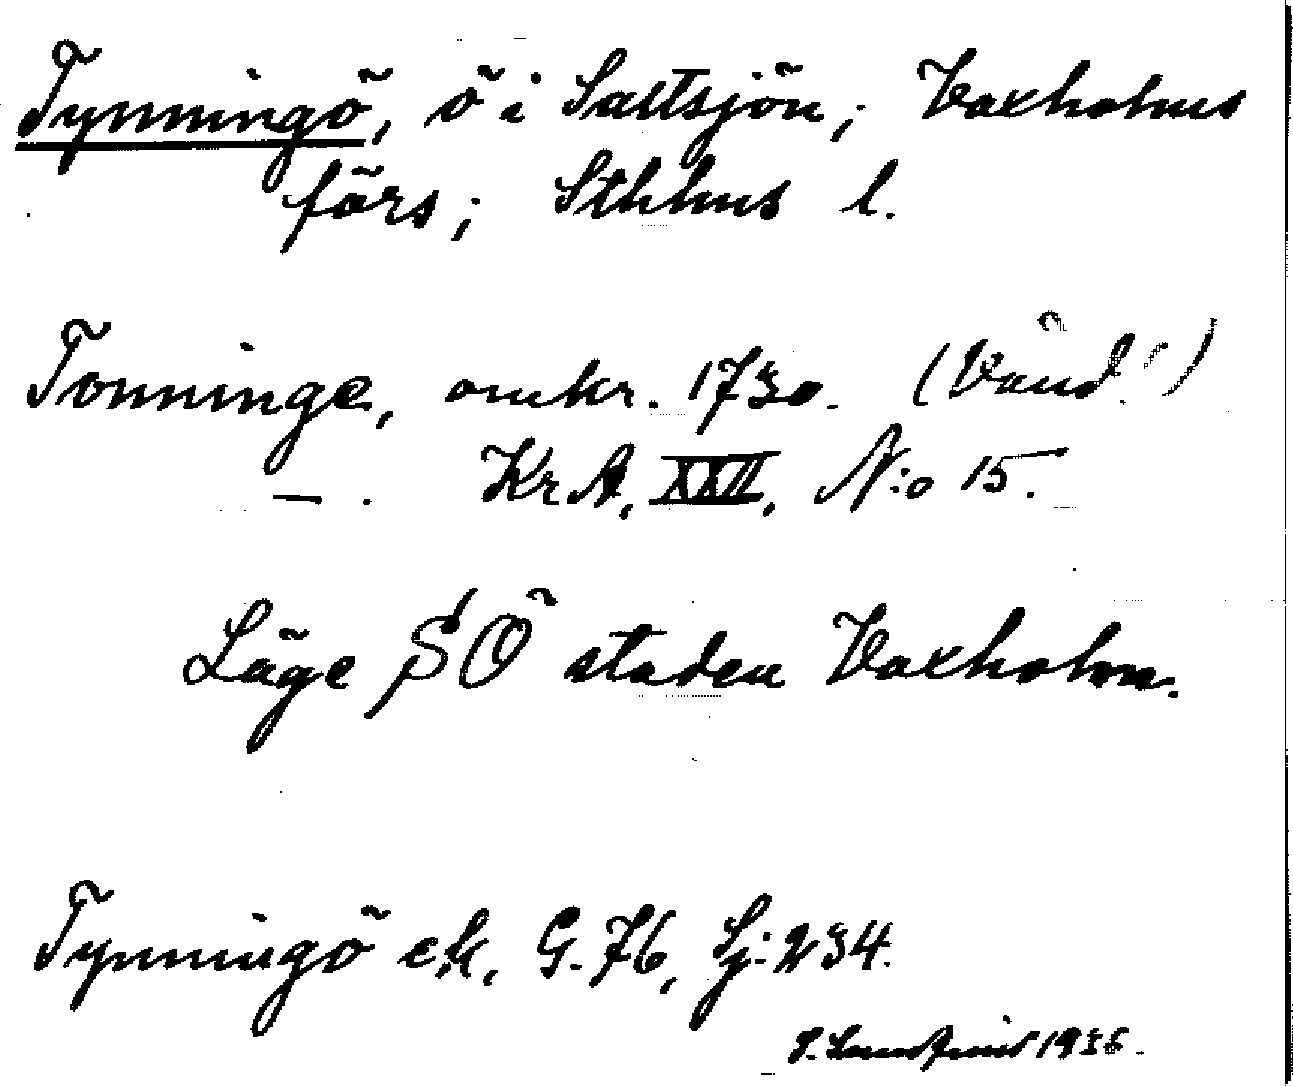 Tynningö, ö i Saltsjön; Vaxholms
förs; Sthlms l.
Tonninge, omkr. 1730. (Vänd!)
—. KrA, XXII, N:o 15.
Läge SÖ staden Vaxholm.
Tynningö ek, G. 76, Sj: 234.
1936.